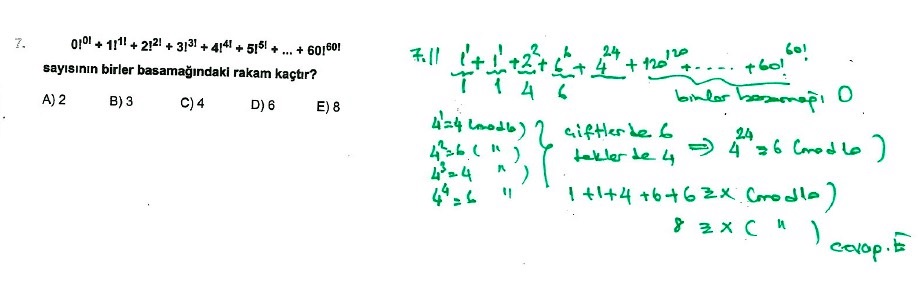 7. 0!^0! + 1!^1! + 2!^2! + 3!^3! + 4!^4! + 5!^5! + ... + 60!^60!
sayısının birler basamağındaki rakam kaçtır?
A) 2 B) 3 C) 4 D) 6 E) 8
7.11 1^1 + 1^1 + 2^2 + 6^6 + 4^24 + 120^120 + ..... + 60!^60!
1 1 4 6 birler basamağı 0
4^1 = 4 (mod10)
4^2 = 6 ( " )
4^3 = 4 " )
4^4 = 6 "
çiftlerde 6
teklerde 4 ⇒ 4^24 ≡ 6 (mod10)
1+1+4+6+6 ≡ x (mod10)
8 ≡ x ( " )
cevap. E